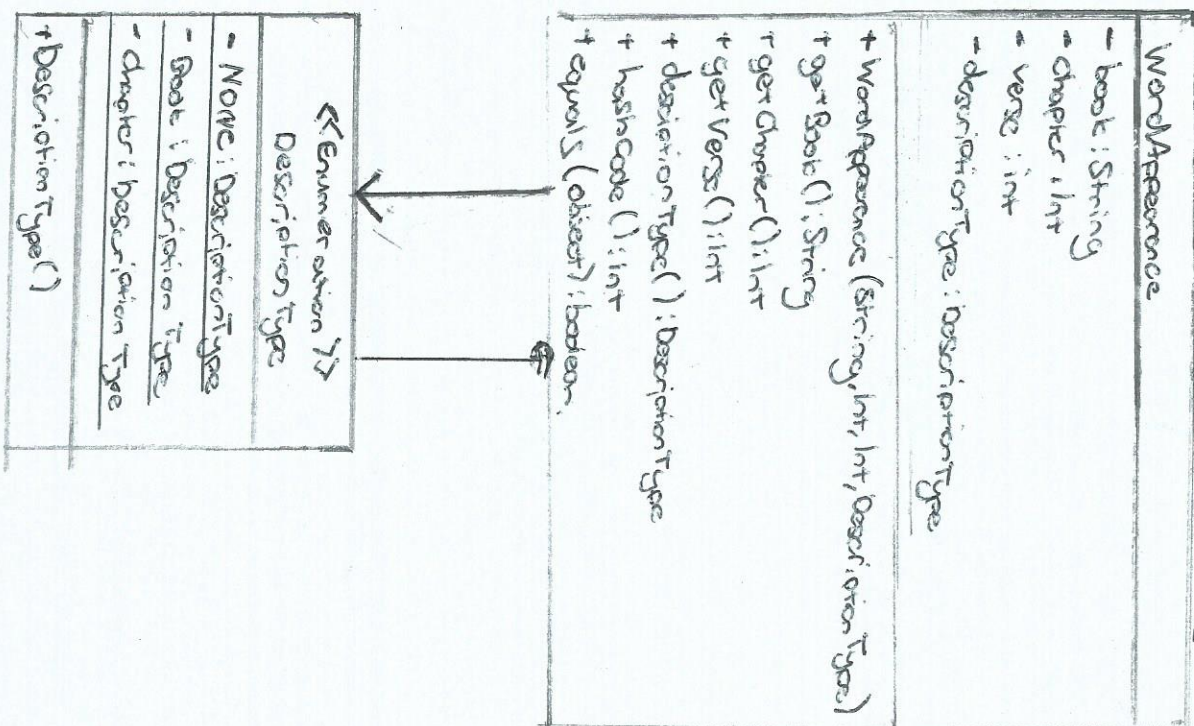 WordAppearance
- book : String
- chapter : Int
- verse : int
- descriptionType : DescriptionType
+ WordAppearance (String, Int, Int, DescriptionType)
+ getBook() : String
+ getChapter() : Int
+ getVerse() : Int
+ desriptionType() : DescriptionType
+ hashCode() : Int
+ equals (object) : boolean.
<<Enumeration>>
DescriptionType
- None : DescriptionType
- Book : DescriptionType
- Chapter : DescriptionType
+ DescriptionType()